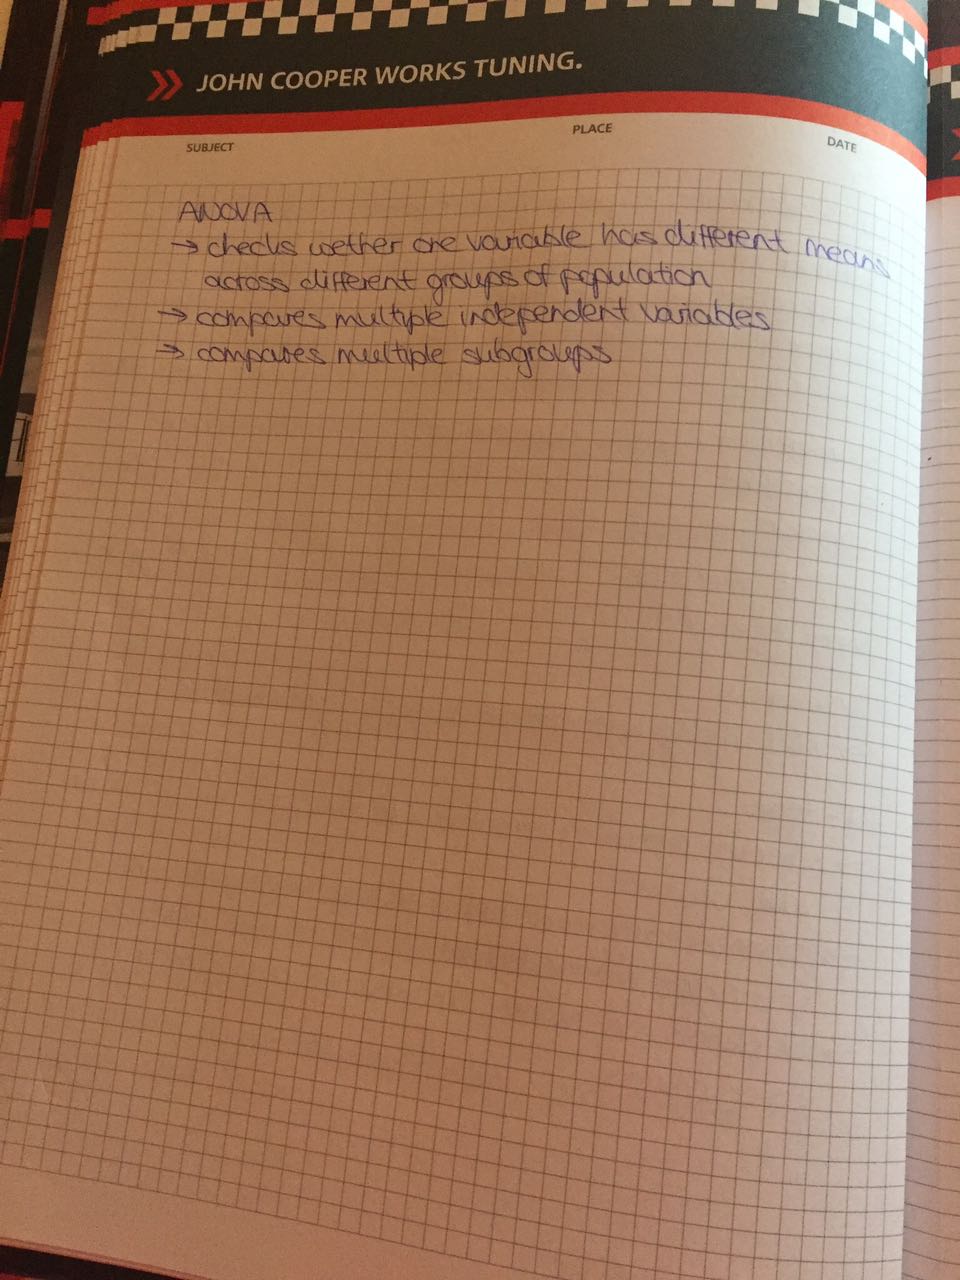 JOHN COOPER WORKS TUNING.
SUBJECT
PLACE
DATE
ANOVA
→ checks wether one variable has different means
across different groups of population
→ compares multiple independent variables
→ compares multiple subgroups